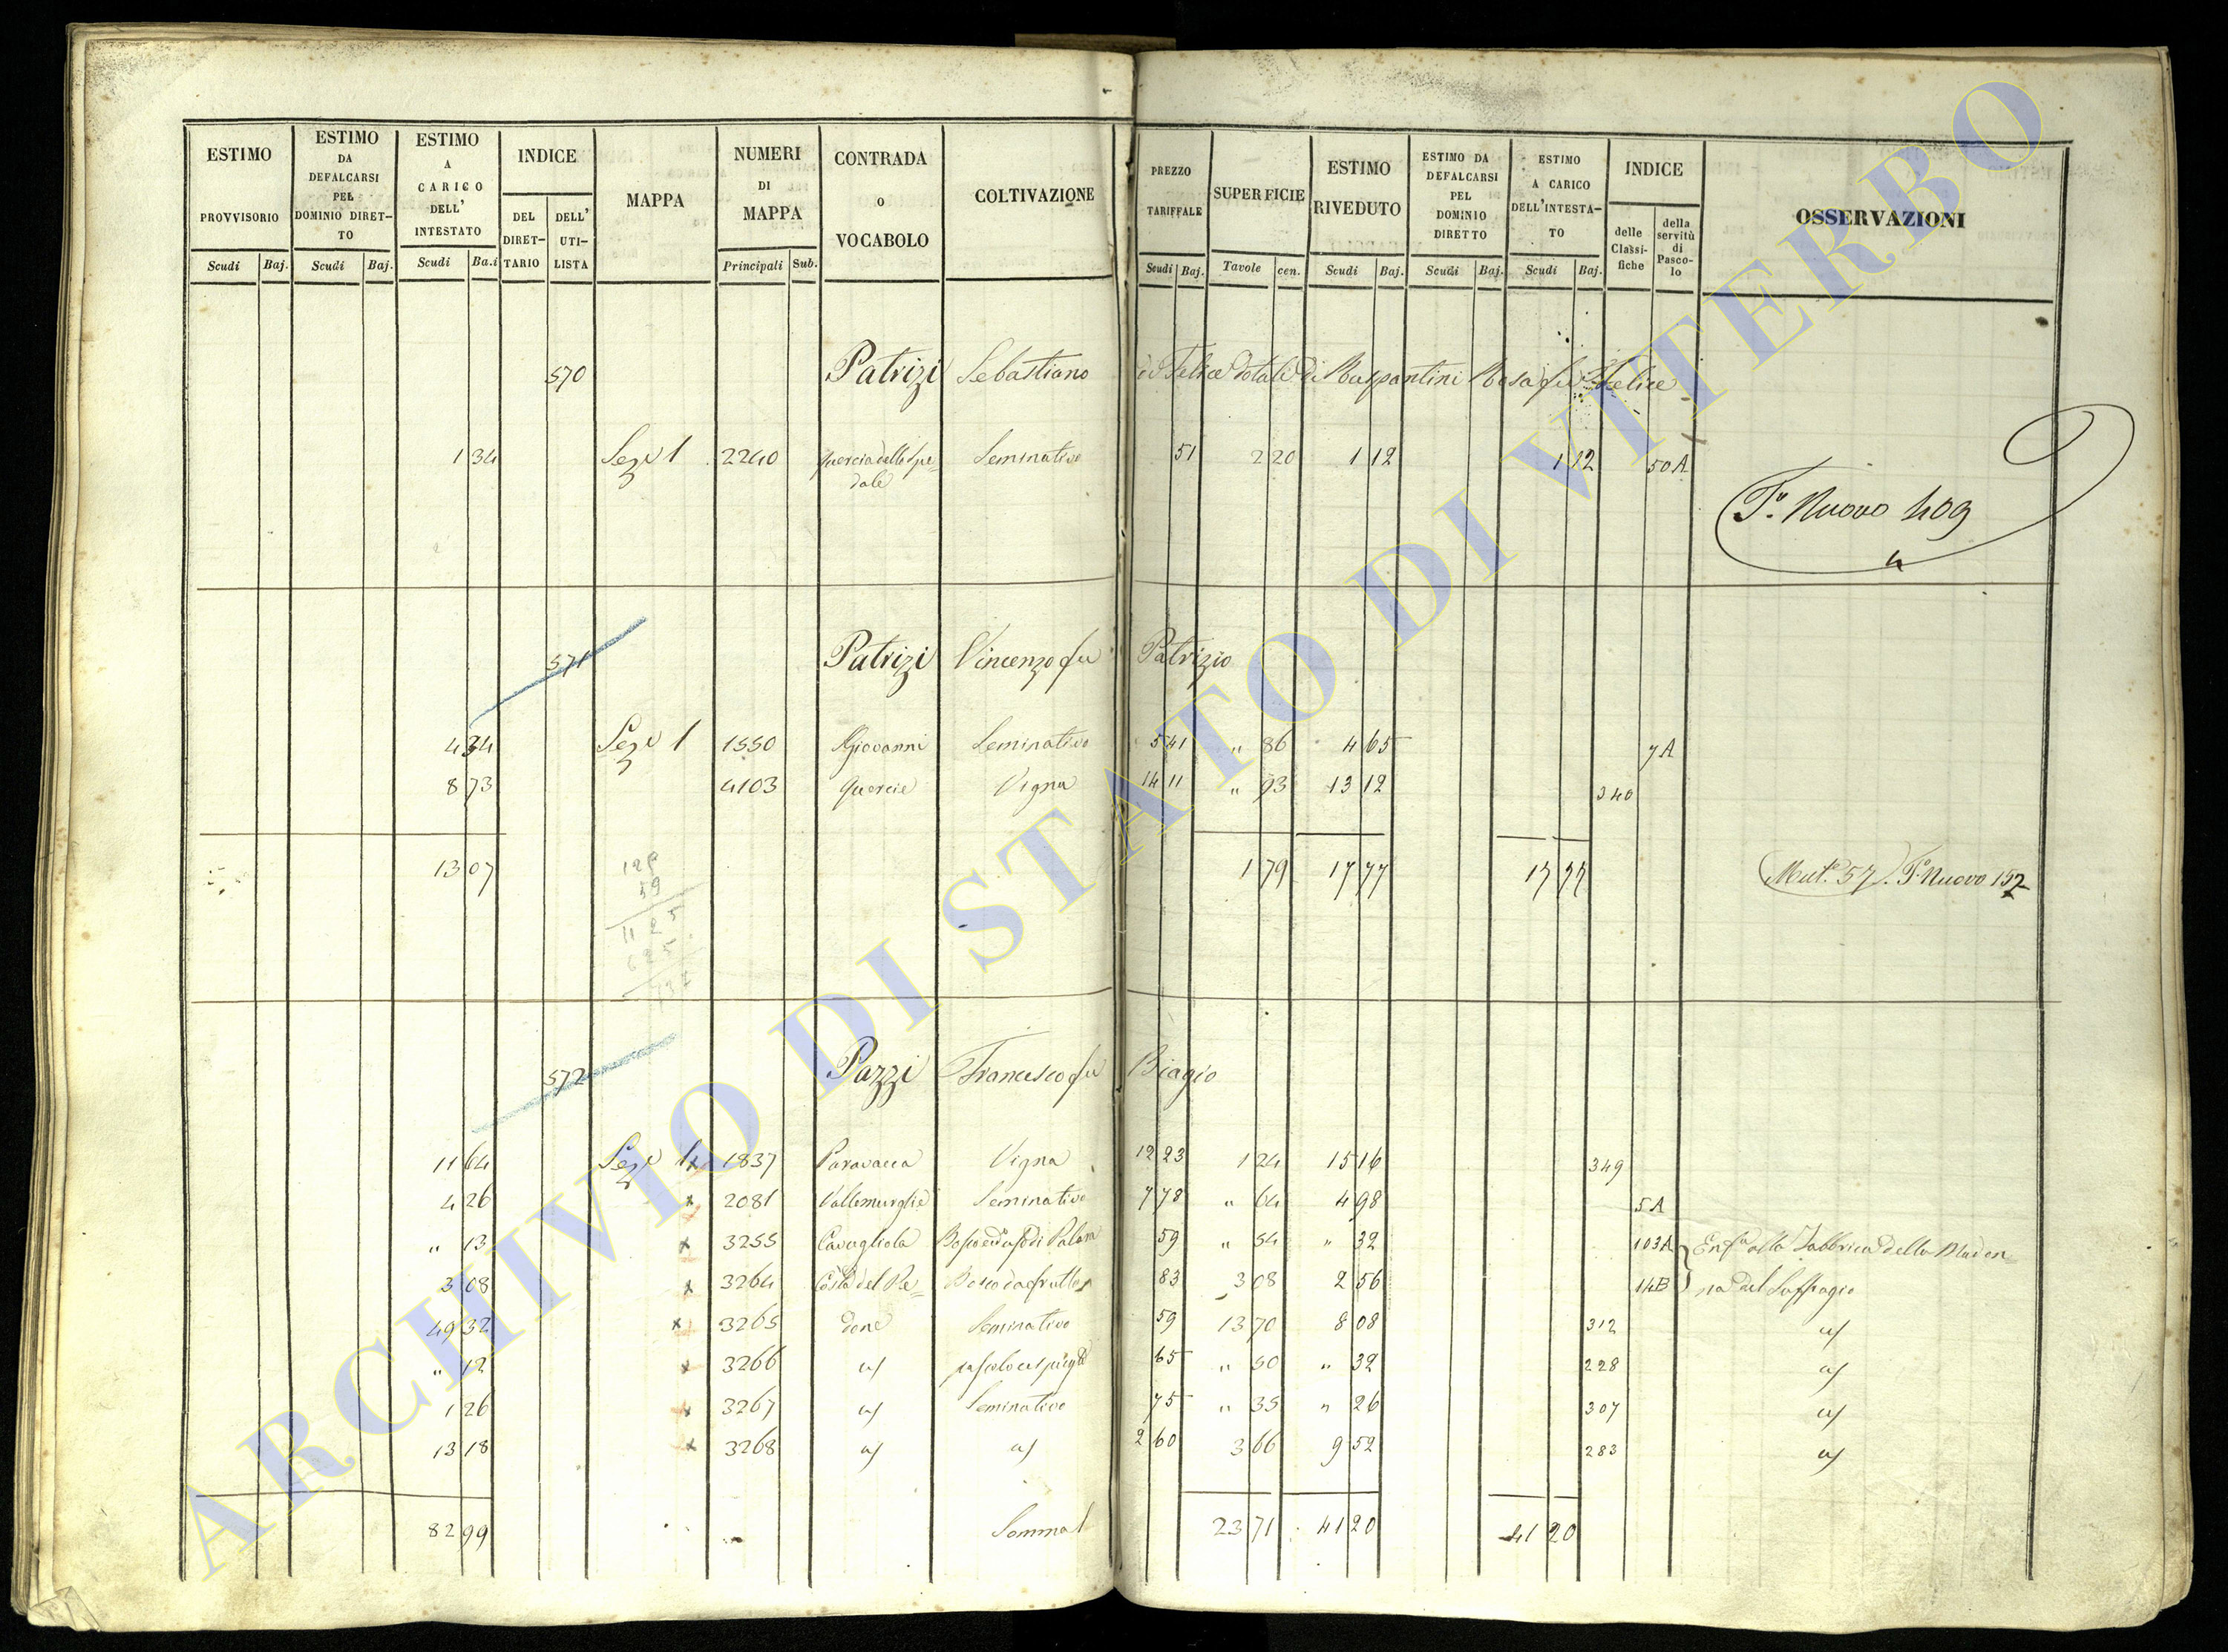 ESTIMO PROVVISORIO
ESTIMO DA DEFALCARSI PEL DOMINIO DIRET- TO
ESTIMO A CARICO DELL' INTESTATO
INDICE
DEL DIRET- TARIO
DELL' UTI- LISTA
MAPPA
NUMERI DI MAPPA
CONTRADA O VOCABOLO
COLTIVAZIONE
PREZZO TARIFFALE
SUPERFICIE
ESTIMO RIVEDUTO
ESTIMO DA DEFALCARSI PEL DOMINIO DIRETTO
ESTIMO A CARICO DELL'INTESTA- TO
INDICE
delle Classi- fiche
della servitù di Pasco- lo
OSSERVAZIONI
Scudi Baj. Scudi Baj. Scudi Ba.i Principali Sub. Scudi Baj. Tavole cen. Scudi Baj. Scudi Baj. Scudi Baj.
570 Patrizi Sebastiano di Felice dotale di Ruspantini Rosa fu Felice
1 34 Sez 1 2240 Quercia dello Spe= dale Seminativo 51 2 20 1 12 1 12 50A
Fo. Nuovo 409
571 Patrizi Vincenzo fu Patrizio
4 34 Sez 1 1550 Giovanni Seminativo 5 41 " 86 4 65 7A
8 73 4103 Quercie Vigna 14 11 " 93 13 12 340
13 07 1 79 17 77 17 77 Mut. 57. Fo. Nuovo 157
572 Pazzi Francesco fu Biagio
11 64 Sez 1 x 1837 Paravacca Vigna 12 23 1 24 15 16 349
4 26 x 2081 Vallemurglie Seminativo 7 78 " 64 4 98 5A
" 13 x 3255 Cavugliola Bosco ed uso di Palara 59 " 54 " 32 103A Enfa. alla Fabbrica della Madon=
3 08 x 3264 Costa del Re= Bosco da frutto 83 3 08 2 56 14B na del Suffragio
49 32 x 3265 done Seminativo 59 13 70 8 08 312 a/
" 12 x 3266 a/ pascolo cespugto 65 " 50 " 32 228 a/
1 26 x 3267 a/ Seminativo 75 " 35 " 26 307 a/
13 18 x 3268 a/ a/ 2 60 3 66 9 52 283 a/
82 99 Somma 23 71 41 20 41 20
ARCHIVIO DI STATO DI VITERBO